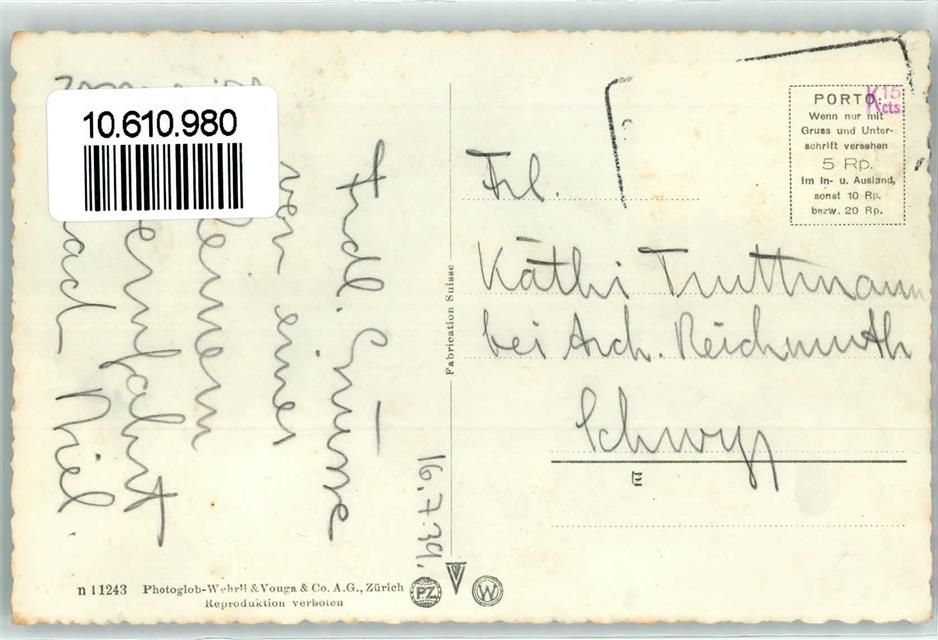 10.610.980
Frdl. Grüsse
von einer
Kleinen
ach Biel.
16.7.39.
Frl.
Käthi Truttmann
bei Arch. Reichmuth
Schwyz
E
PORTO:
Wenn nur mit
Gruss und Unter-
schrift versehen
5 Rp.
im In- u. Ausland,
sonst 10 Rp.
bezw. 20 Rp.
K 15
cts
Fabrication Suisse
n 11243 Photoglob-Wehrli & Vouga & Co. A.G., Zürich
Reproduktion verboten
PZ
V
W